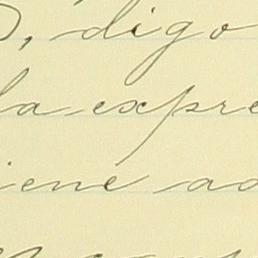 , digo
la expre
iene ad